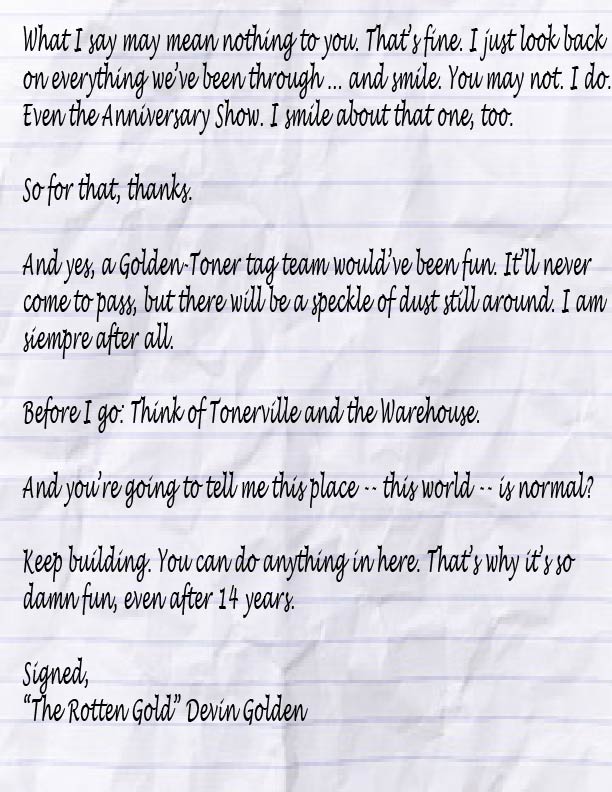 What I say may mean nothing to you. That's fine. I just look back
on everything we've been through ... and smile. You may not. I do.
Even the Anniversary Show. I smile about that one, too.
So for that, thanks.
And yes, a Golden-Toner tag team would've been fun. It'll never
come to pass, but there will be a speckle of dust still around. I am
siempre after all.
Before I go: Think of Tonerville and the Warehouse.
And you're going to tell me this place -- this world -- is normal?
Keep building. You can do anything in here. That's why it's so
damn fun, even after 14 years.
Signed,
"The Rotten Gold" Devin Golden